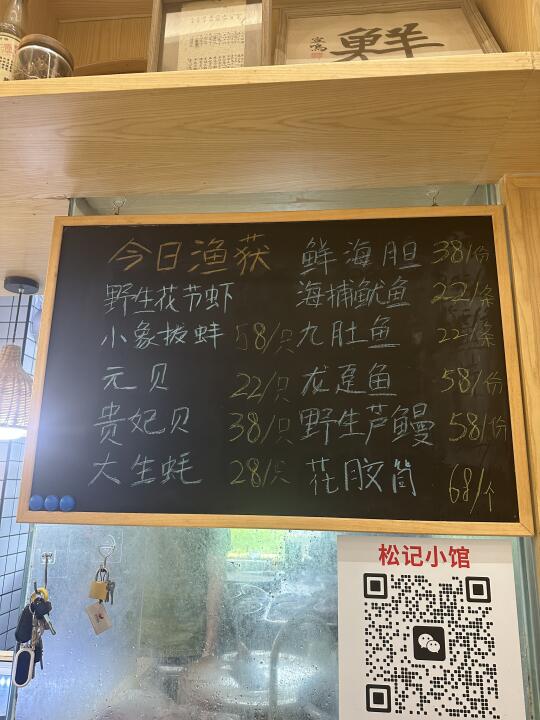 鮮
今日渔获
野生花节虾
小象拔蚌 58/只
元贝 22/只
贵妃贝 38/只
大生蚝 28/只
鲜海胆 38/份
海捕鱿鱼 22/条
九肚鱼 22/条
龙趸鱼 58/份
野生芦鳗 58/份
花胶筒 68/个
松记小馆